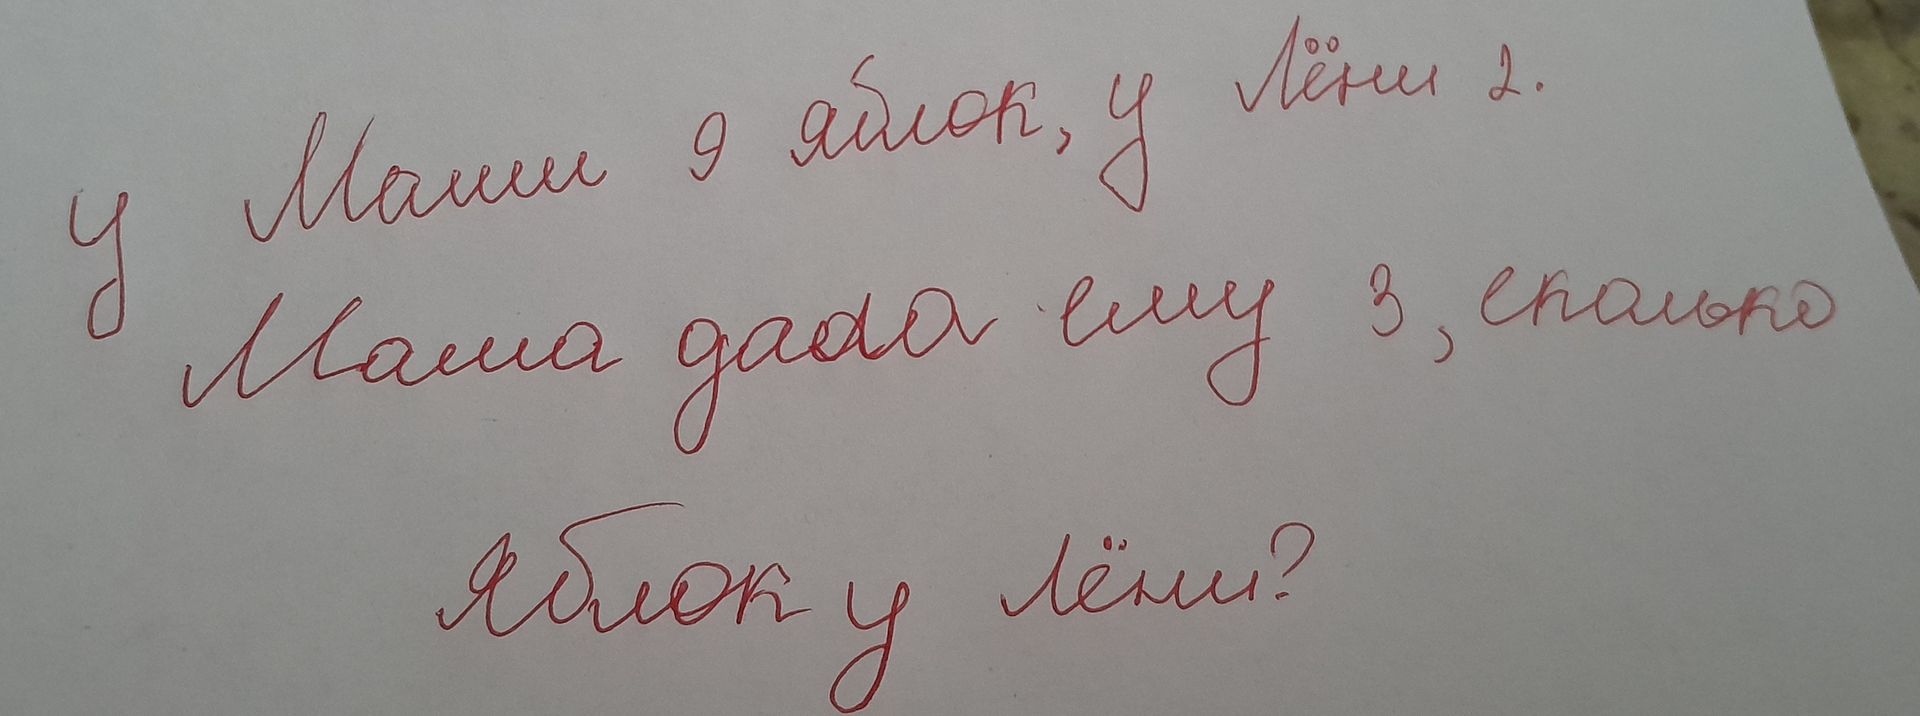 У Маши 9 яблок, у Лёни 2.
Маша дала ему 3, сколько
яблок у Лёни?